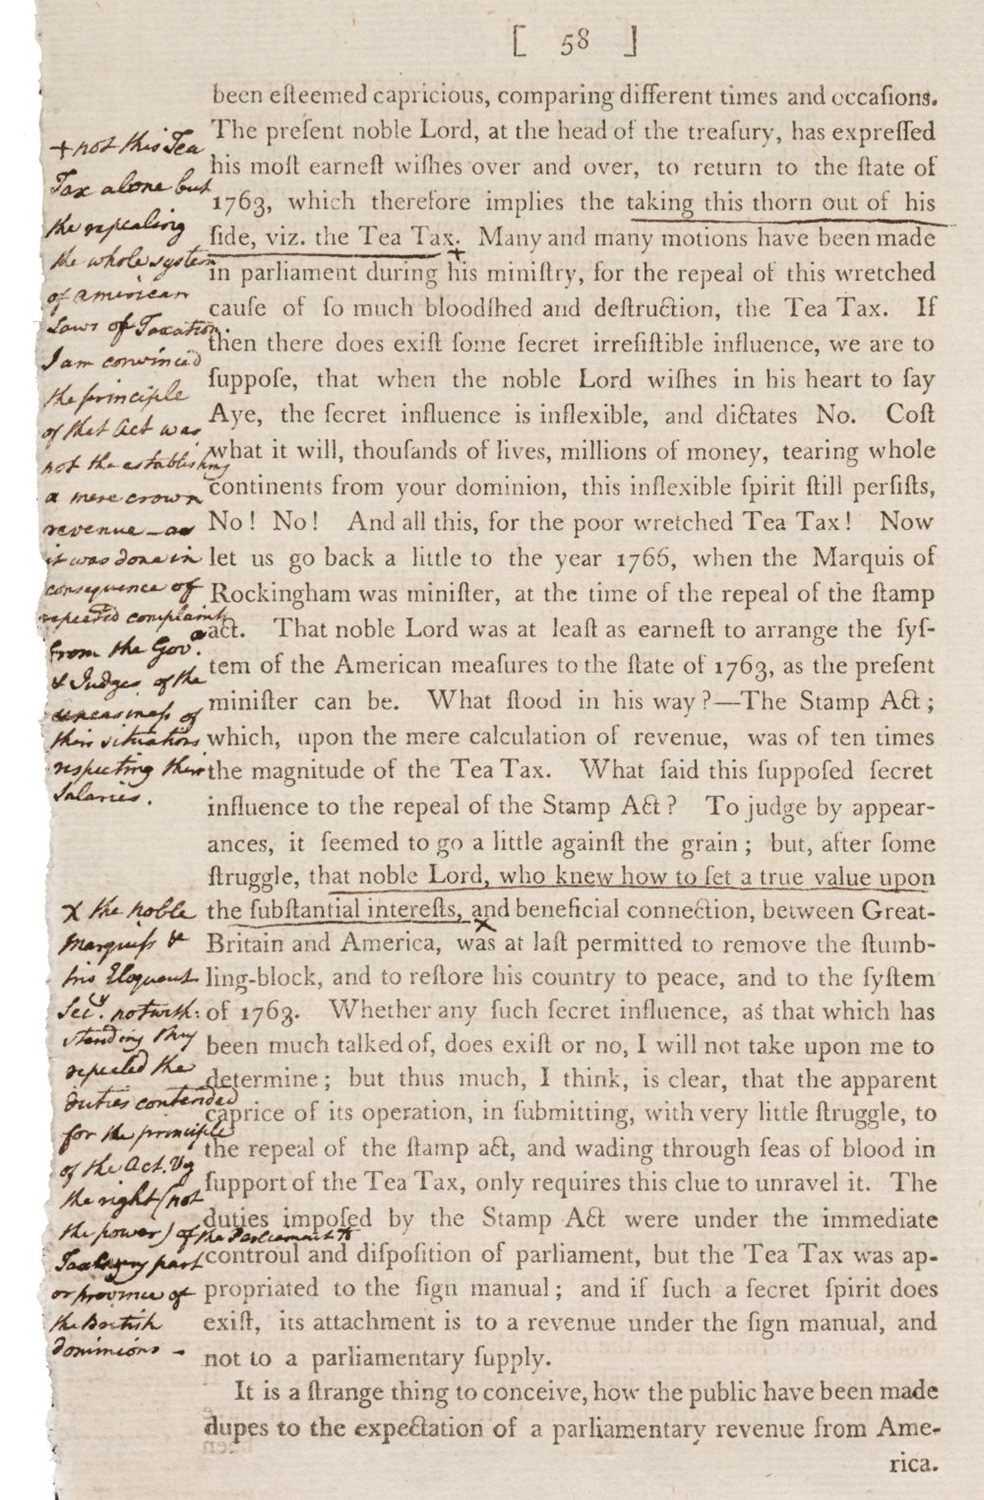 [ 58 ]
been eſteemed capricious, comparing different times and occaſions.
The preſent noble Lord, at the head of the treaſury, has expreſſed
his moſt earneſt wiſhes over and over, to return to the ſtate of
1763, which therefore implies the taking this thorn out of his
ſide, viz. the Tea Tax. Many and many motions have been made
+
in parliament during his miniſtry, for the repeal of this wretched
cauſe of ſo much bloodſhed and deſtruction, the Tea Tax. If
then there does exiſt ſome ſecret irreſiſtible influence, we are to
ſuppoſe, that when the noble Lord wiſhes in his heart to ſay
Aye, the ſecret influence is inflexible, and dictates No. Coſt
what it will, thouſands of lives, millions of money, tearing whole
continents from your dominion, this inflexible ſpirit ſtill perſiſts,
No! No! And all this, for the poor wretched Tea Tax! Now
let us go back a little to the year 1766, when the Marquis of
Rockingham was miniſter, at the time of the repeal of the ſtamp
act. That noble Lord was at leaſt as earneſt to arrange the ſyſ-
tem of the American meaſures to the ſtate of 1763, as the preſent
miniſter can be. What ſtood in his way?—The Stamp Act;
which, upon the mere calculation of revenue, was of ten times
the magnitude of the Tea Tax. What ſaid this ſuppoſed ſecret
influence to the repeal of the Stamp Act? To judge by appear-
ances, it ſeemed to go a little againſt the grain; but, after ſome
ſtruggle, that noble Lord, who knew how to ſet a true value upon
the ſubſtantial intereſts, and beneficial connection, between Great-
x
Britain and America, was at laſt permitted to remove the ſtumb-
ling-block, and to reſtore his country to peace, and to the ſyſtem
of 1763. Whether any ſuch ſecret influence, as that which has
been much talked of, does exiſt or no, I will not take upon me to
determine; but thus much, I think, is clear, that the apparent
caprice of its operation, in ſubmitting, with very little ſtruggle, to
the repeal of the ſtamp act, and wading through ſeas of blood in
ſupport of the Tea Tax, only requires this clue to unravel it. The
duties impoſed by the Stamp Act were under the immediate
controul and diſpoſition of parliament, but the Tea Tax was ap-
propriated to the ſign manual; and if ſuch a ſecret ſpirit does
exiſt, its attachment is to a revenue under the ſign manual, and
not to a parliamentary ſupply.
It is a ſtrange thing to conceive, how the public have been made
dupes to the expectation of a parliamentary revenue from Ame-
rica.
+ not this Tea
Tax alone but
the repealing
the whole system
of american
Laws of Taxation.
I am convinced
the principle
of that Act was
not the establishing
a mere crown
revenue – as
it was done in
consequence of
repeated complaints
from the Gov.rs
& Judges of the
uneasiness of
their situations
respecting their
Salaries.
x the noble
Marquiſs &
his Eloquent
Secy. notwith:
standing they
repealed the
duties contended
for the principle
of the Act. Viz
the right (not
the power) of the Parliament to
Tax every part
or province of
the British
dominions –